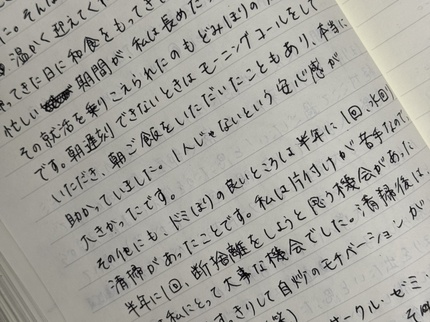 た。そんな
温かく迎えてく
ってきた日に和食をもってき
忙しい 期間が、私は長めだ
その就活を乗りこえられたのもどみほりの
です。朝遅刻できないときはモーニングコールをして
いただき、朝ご飯をいただいたこともあり、本当に
助かっていました。1人じゃないという安心感が
大きかったです。
その他にも、ドミほりの良いところは半年に1回、水回り
清掃があったことです。私は片付けが苦手なので
半年に1回、断捨離をしようと思う機会があった
私にとって大事な機会でした。清掃後は、
っきりして自炊のモチベーションが
笑)
サークル・ゼミ・